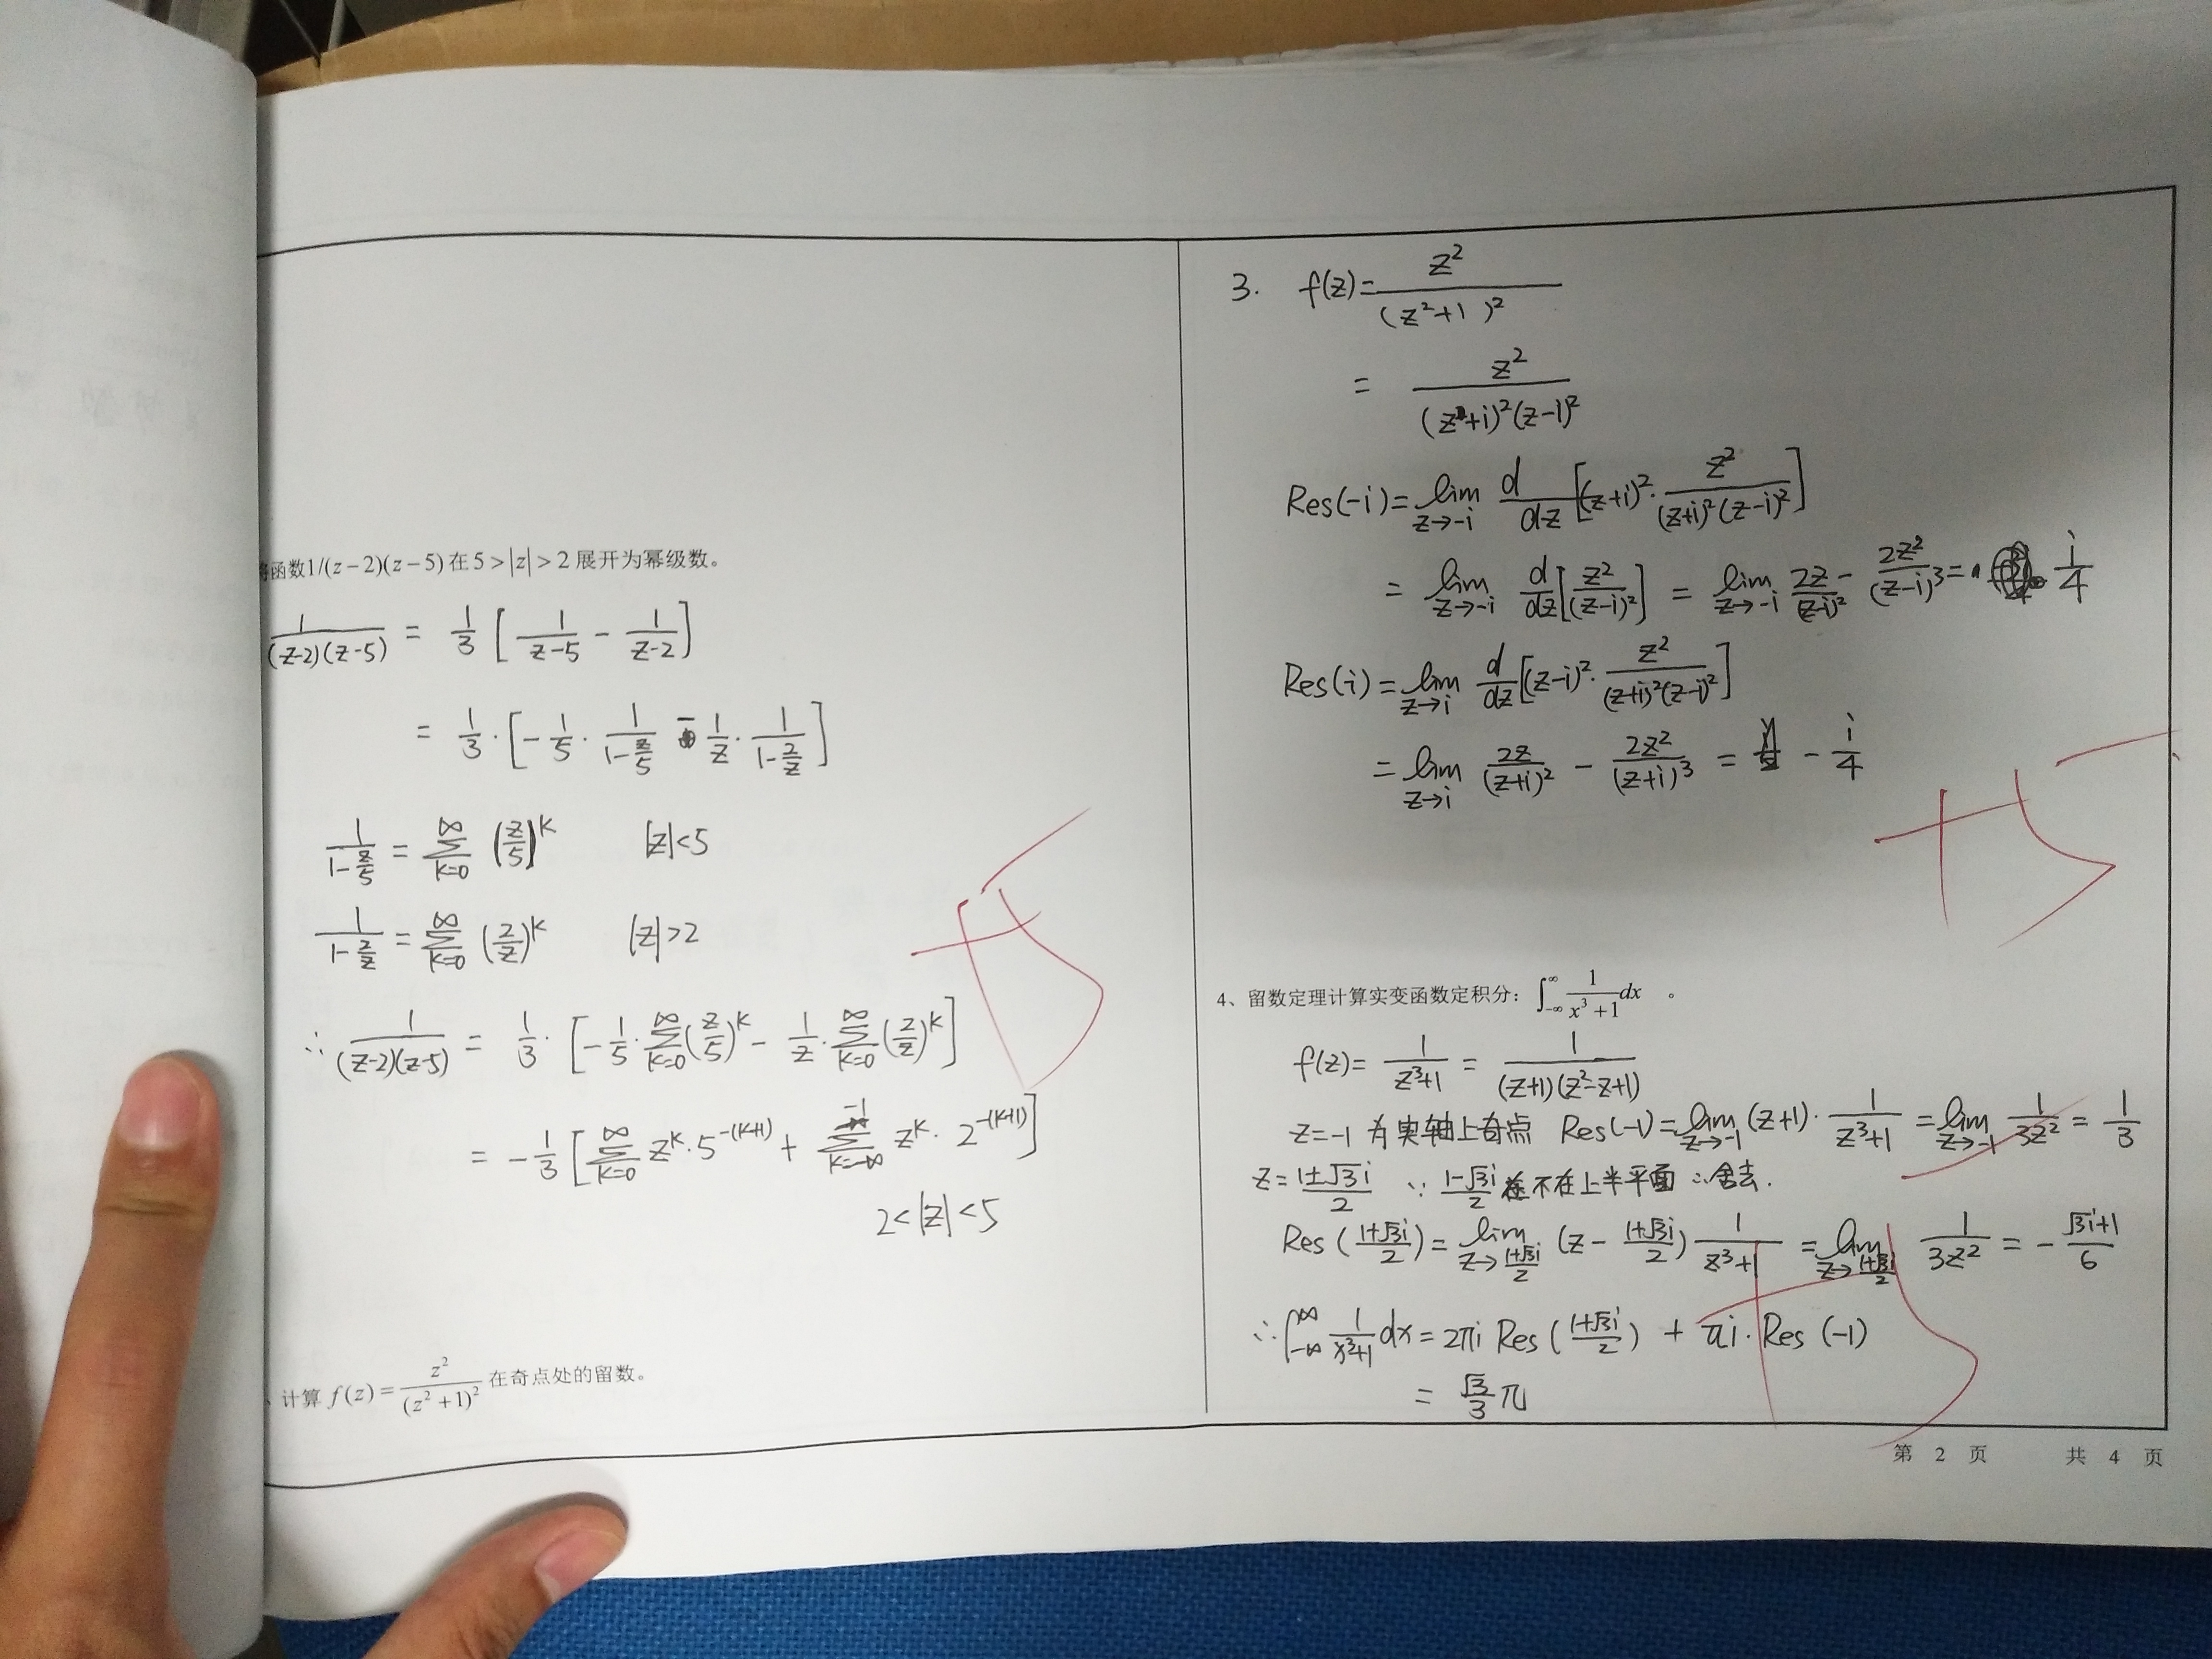 函数1/(z−2)(z−5)在5>|z|>2展开为幂级数。
1/((z-2)(z-5)) = 1/3 [1/(z-5) - 1/(z-2)]
= 1/3·[-1/5·1/(1-z/5) - 1/z·1/(1-2/z)]
1/(1-z/5) = ∑_{k=0}^{∞} (z/5)^k |z|<5
1/(1-2/z) = ∑_{k=0}^{∞} (2/z)^k |z|>2
∴ 1/((z-2)(z-5)) = 1/3·[-1/5·∑_{k=0}^{∞}(z/5)^k - 1/z·∑_{k=0}^{∞}(2/z)^k]
= -1/3[∑_{k=0}^{∞} z^k·5^{-(k+1)} + ∑_{k=-∞}^{-1} z^k·2^{-(k+1)}]
2<|z|<5
+5
、计算 f(z)=z²/(z²+1)² 在奇点处的留数。
3. f(z)= z²/(z²+1)²
= z²/((z+i)²(z-i)²)
Res(-i)=lim_{z→-i} d/dz[(z+i)²·z²/((z+i)²(z-i)²)]
= lim_{z→-i} d/dz[z²/(z-i)²] = lim_{z→-i} 2z/(z-i)² - 2z²/(z-i)³ = i/4
Res(i)=lim_{z→i} d/dz[(z-i)²·z²/((z+i)²(z-i)²)]
=lim_{z→i} 2z/(z+i)² - 2z²/(z+i)³ = -i/4
+5
4、留数定理计算实变函数定积分：∫_{-∞}^{∞} 1/(x³+1) dx 。
f(z)= 1/(z³+1) = 1/((z+1)(z²-z+1))
z=-1 为实轴上奇点 Res(-1)=lim_{z→-1}(z+1)·1/(z³+1) =lim_{z→-1} 1/(3z²) = 1/3
z=(1±√3i)/2 ∵ (1-√3i)/2 不在上半平面 ∴舍去.
Res((1+√3i)/2)=lim_{z→(1+√3i)/2} (z-(1+√3i)/2) 1/(z³+1) =lim_{z→(1+√3i)/2} 1/(3z²) = -(√3i+1)/6
∴∫_{-∞}^{∞} 1/(x³+1) dx=2πi Res((1+√3i)/2) + πi·Res(-1)
= √3/3 π
+5
第 2 页 共 4 页